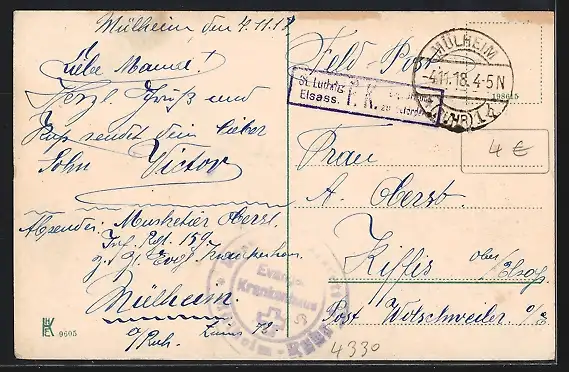 Mülheim den 4.11.18
Liebe Mama!
Herzl. Gruß und
Kuß sendet dein lieber
Sohn Victor
Absender: Musketier Oberst.
Inf. Rgt. 159
z. Zt. Evgl. Krankenhaus
Mülheim
a/Ruhr. Zimmer 18
HK
9605
Feld-Post
MÜLHEIM
-4.11.18.4-5N
(RUHR) 1
St. Ludwig
Elsass.
P. K.
198615
4 €
Frau
A. Oberst.
Kiffis ober Elsaß
Post Wolschweiler o/E
Evangel.
Krankenhaus
Mülheim-Ruhr
4330